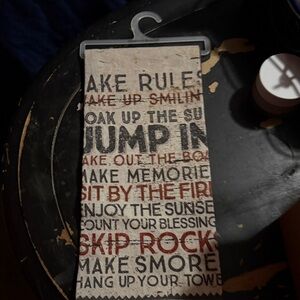 AKE RULES
AKE UP SMILIN
OAK UP THE SU
JUMP IN
AKE OUT THE BOA
MAKE MEMORIE
SIT BY THE FIR
NJOY THE SUNSE
OUNT YOUR BLESSING
SKIP ROCK
MAKE SMORE
HANG UP YOUR TOWE